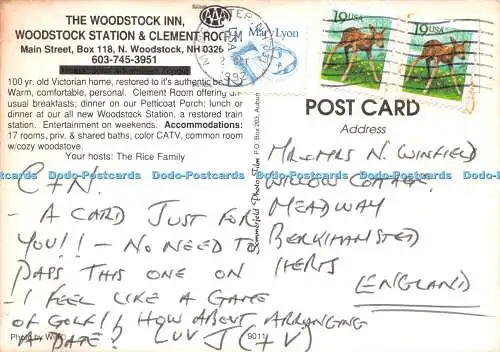 THE WOODSTOCK INN,
WOODSTOCK STATION & CLEMENT ROOM
Main Street, Box 118, N. Woodstock, NH 0326
603-745-3951
100 yr. old Victorian home, restored to it's authentic be
Warm, comfortable, personal. Clement Room offering an
usual breakfasts; dinner on our Petticoat Porch; lunch or
dinner at our all new Woodstock Station, a restored train
station. Entertainment on weekends. Accommodations:
17 rooms, priv. & shared baths, color CATV, common room
w/cozy woodstove.
Your hosts: The Rice Family
AAA
Mary Lyon
2
1992
19 USA
19 USA
POST CARD
Address
C & N.
- A CARD JUST FOR
YOU!! - NO NEED TO
PASS THIS ONE ON
- I FEEL LIKE A GAME
OF GOLF!! HOW ABOUT ARRANGING
A DATE? LUV J (+V)
MR & MRS N. WINFIELD
WILLOW COTTAGE,
MEADWAY
BERKHAMSTED
HERTS
ENGLAND
Sommerfeld Photo Film P.O. Box 203, Auburn
Photo by W
9011
Dodo-Postcards Dodo-Postcards Dodo-Postcards Dodo-Postcards